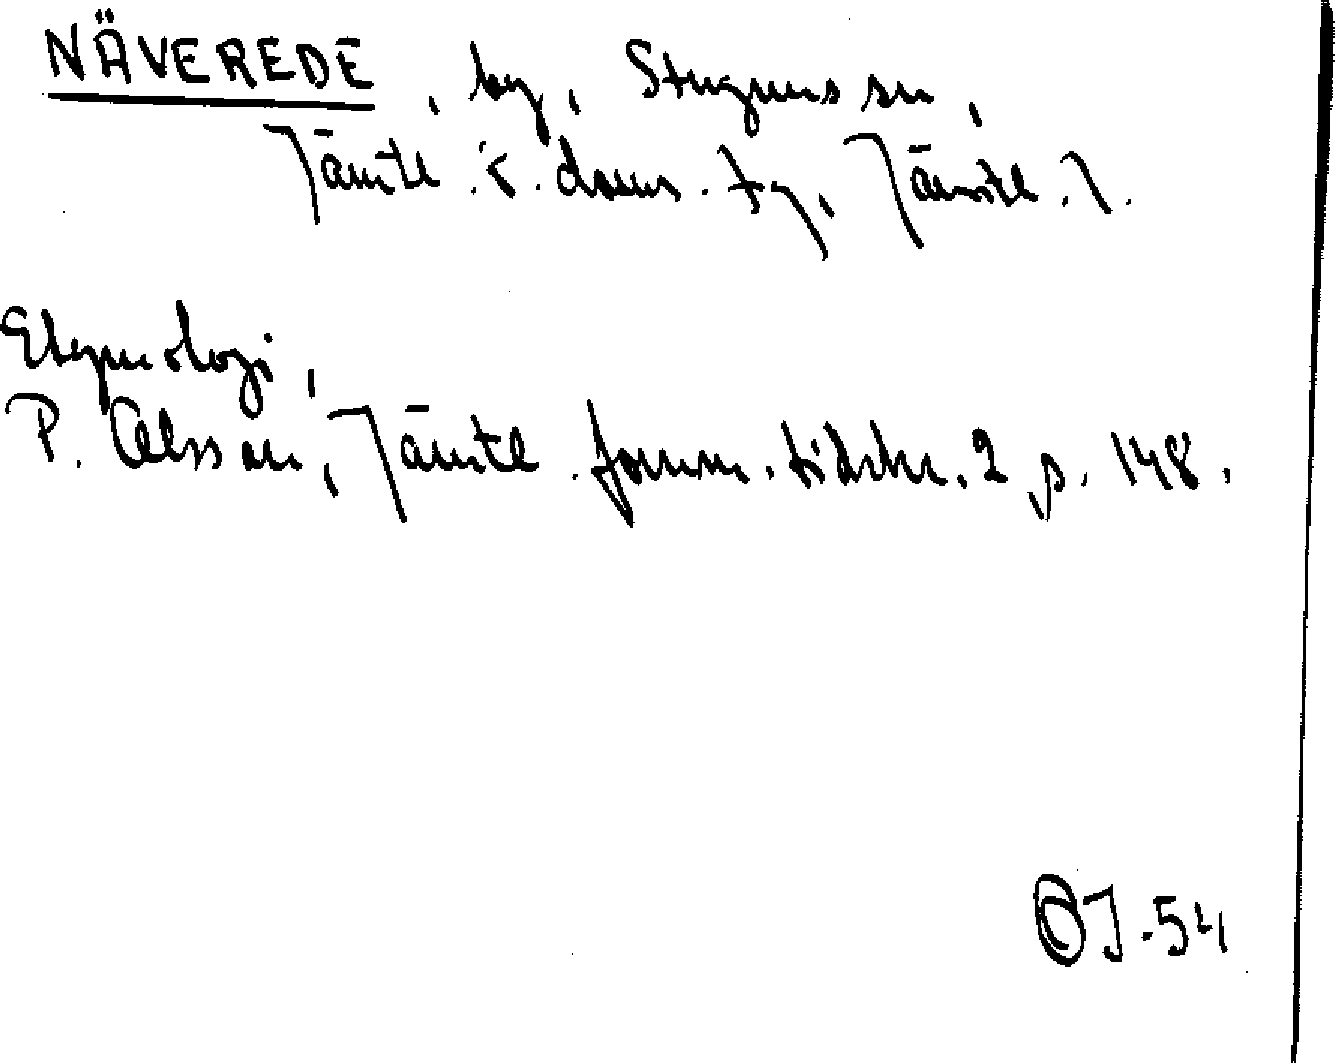 NÄVEREDE, by, Stuguns sn,
Jämtl. ö. doms. tg, Jämtl. l.
Etymologi,
P. Olsson, Jämtl. fornm. tidskr. 2 s. 148.
OJ-54